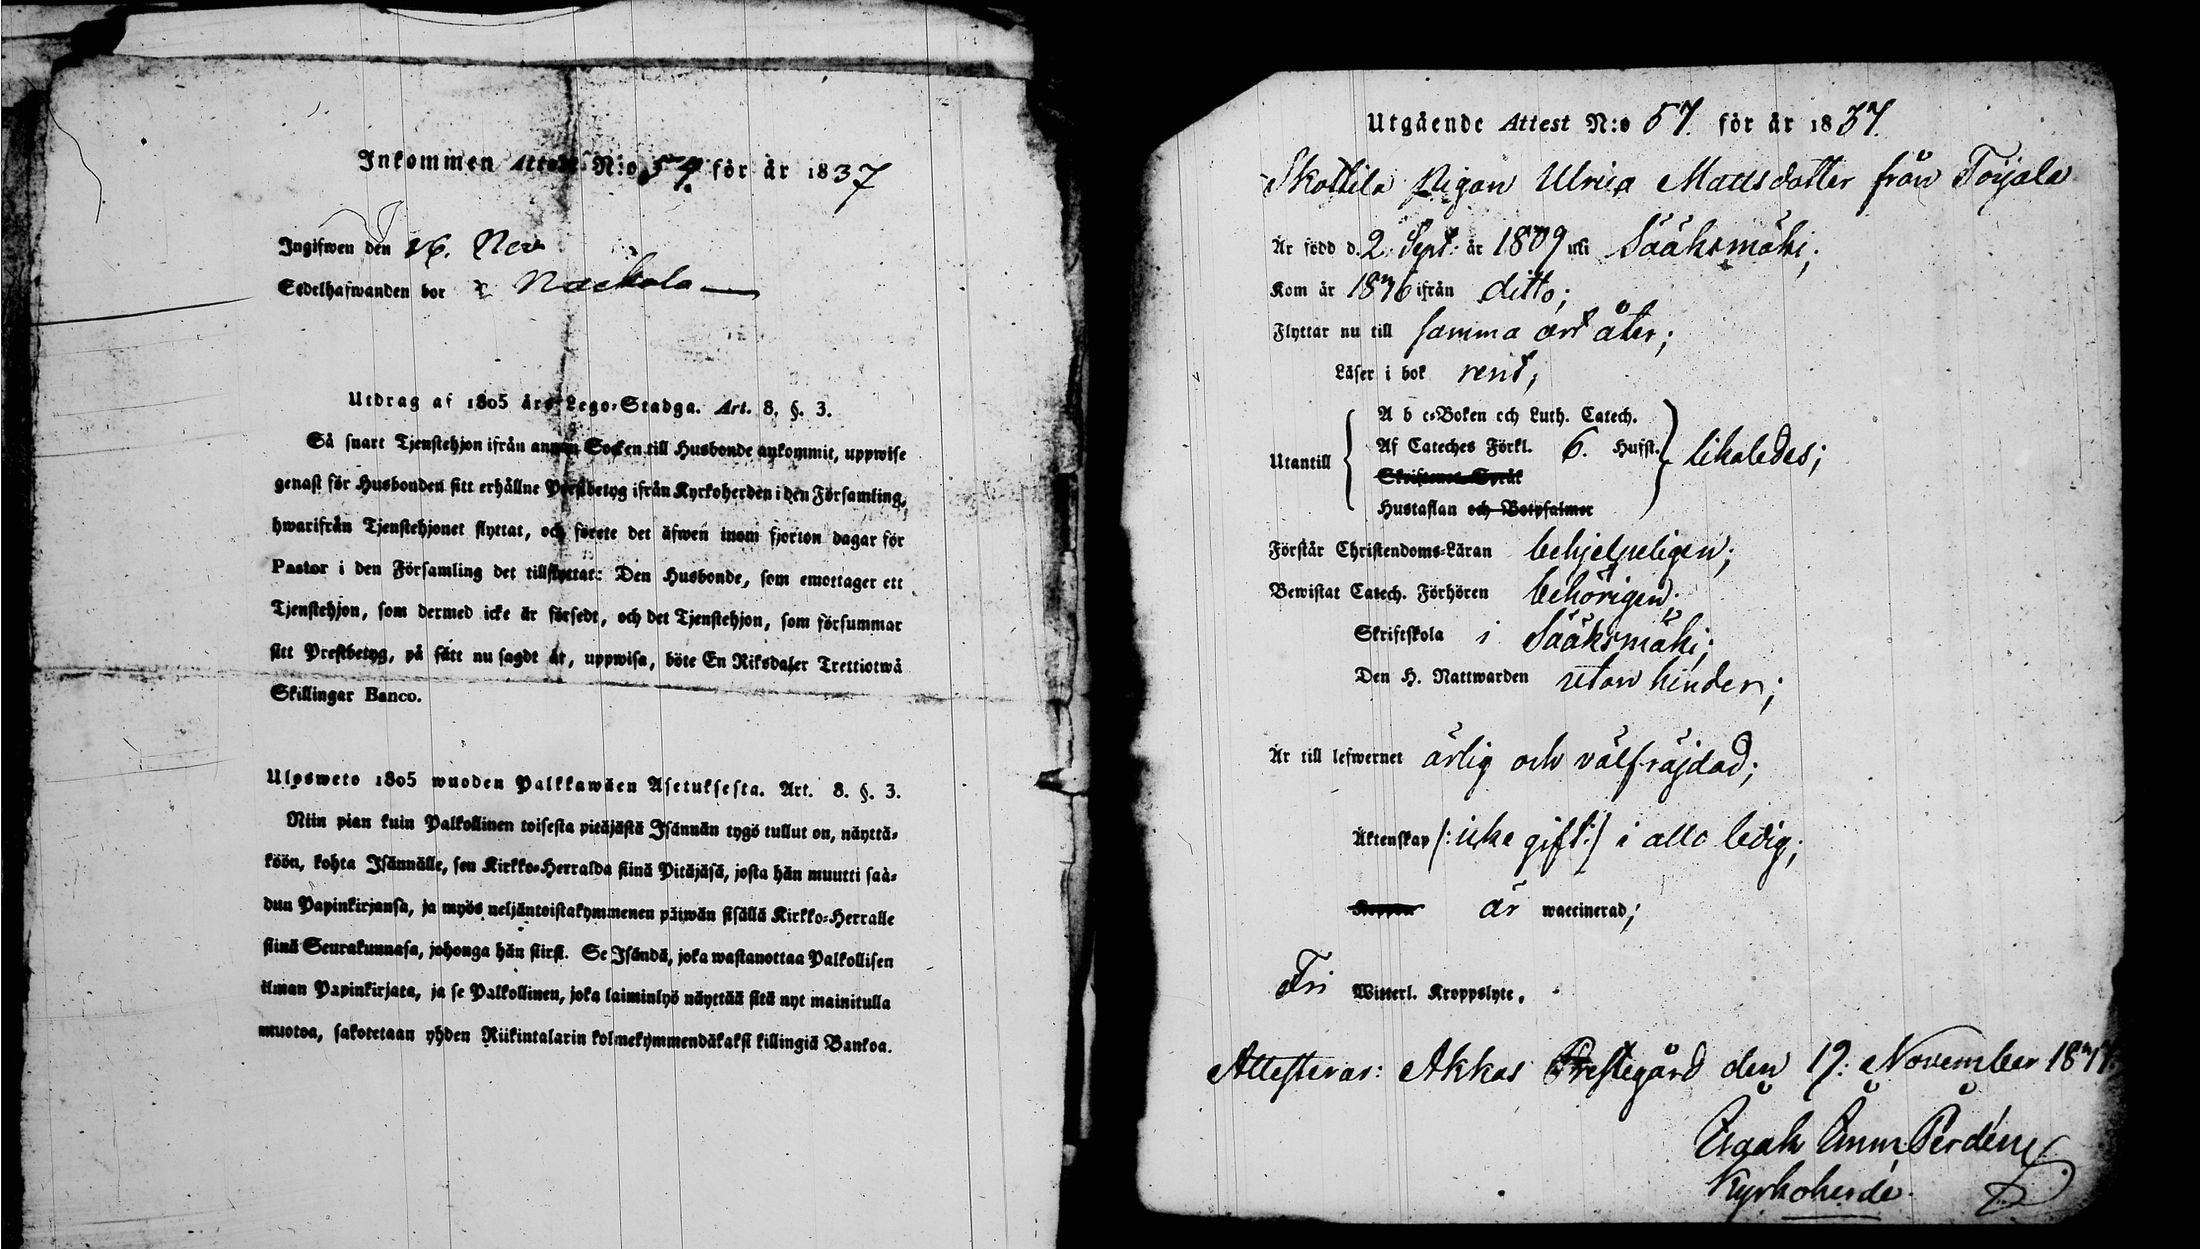 Inkommen Attest N:o 57. för år 1837
Ingifwen den 26. Nov
Sedelhafwanden bor i Nackola
Utdrag af 1805 års Lego-Stadga. Art. 8. §. 3.
Så snart Tjenstehjon ifrån annan Socken till Husbonde ankommit, uppwise
genast för Husbonden sitt erhållne Prestbetyg ifrån Kyrkoherden i den Församling,
hwarifrån Tjenstehjonet flyttat, och förete det äfwen inom fjorton dagar för
Pastor i den Församling det tillflyttat: Den Husbonde, som emottager ett
Tjenstehjon, som dermed icke är försedt, och det Tjenstehjon, som försummar
sitt Prestbetyg, på sätt nu sagdt är, uppwisa, böte En Riksdaler Trettiotwå
Skillingar Banco.
Ulosweto 1805 wuoden Palkkawäen Asetuksesta. Art. 8. §. 3.
Niin pian kuin Palkollinen toisesta pitäjästä Isännän tygö tullut on, näyttä-
köön, kohta Isännälle, sen Kirkko-Herralda siinä Pitäjäsä, josta hän muutti saa-
dun Papinkirjansa, ja myös neljäntoistakymmenen päiwän sisällä Kirkko-Herralle
siinä Seurakunnasa, johonga hän siirsi. Se Isändä, joka wastanottaa Palkollisen
ilman Papinkirjata, ja se Palkollinen, joka laiminlyö näyttää sitä nyt mainitulla
muotoa, sakotetaan yhden Riikintalarin kolmekymmendäkaksi killingiä Bankoa.
Utgående Attest N:o 57. för år 1837.
Skottila Pigan Ulrica Mattsdotter från Törjala
Är född d. 2 Sept: år 1809 uti Sääksmäki;
Kom år 1836 ifrån ditto;
Flyttar nu till samma ort åter;
Läser i bok rent;
Utantill
A b c-Boken och Luth. Catech.
Af Cateches Förkl. 6. Hufst.
Skriftenes Språk
Hustaflan och Botpsalmer
likaledes;
Förstår Christendoms-Läran behjelpeligen;
Bewistat Catech. Förhören behörigen;
Skriftskola i Sääksmäki;
Den H. Nattwarden utan hinder;
Är till lefwernet ärlig och välfräjdad;
Äktenskap (: icke gift :) i allo ledig;
är waccinerad;
Fri Witterl. Kroppslyte.
Attesterar: Akkas Prestegård den 19: November 1837.
Isaak Imm: Perdén
Kyrkoherde.